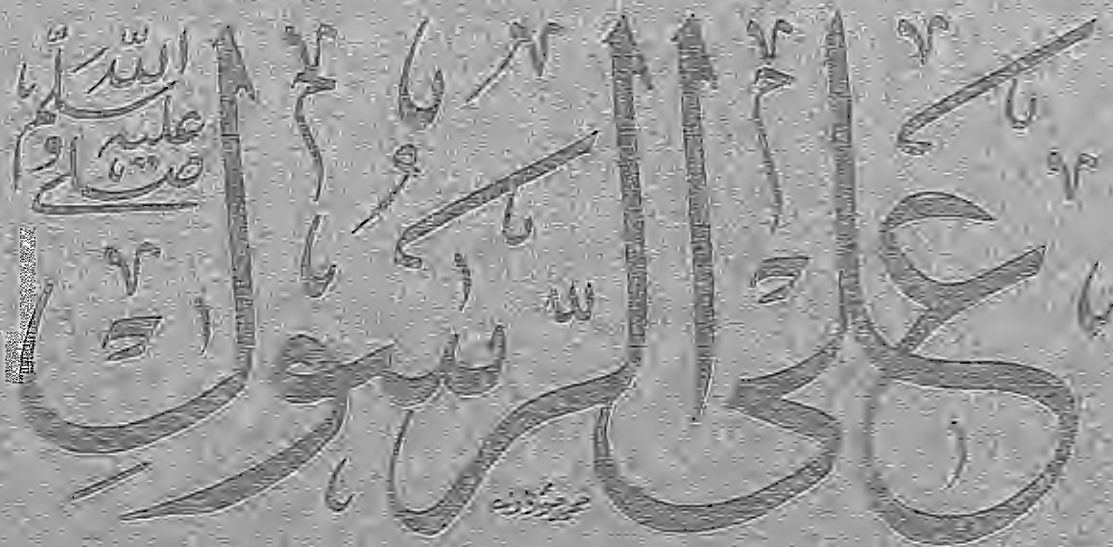 على الرسول
صلى الله عليه وسلم